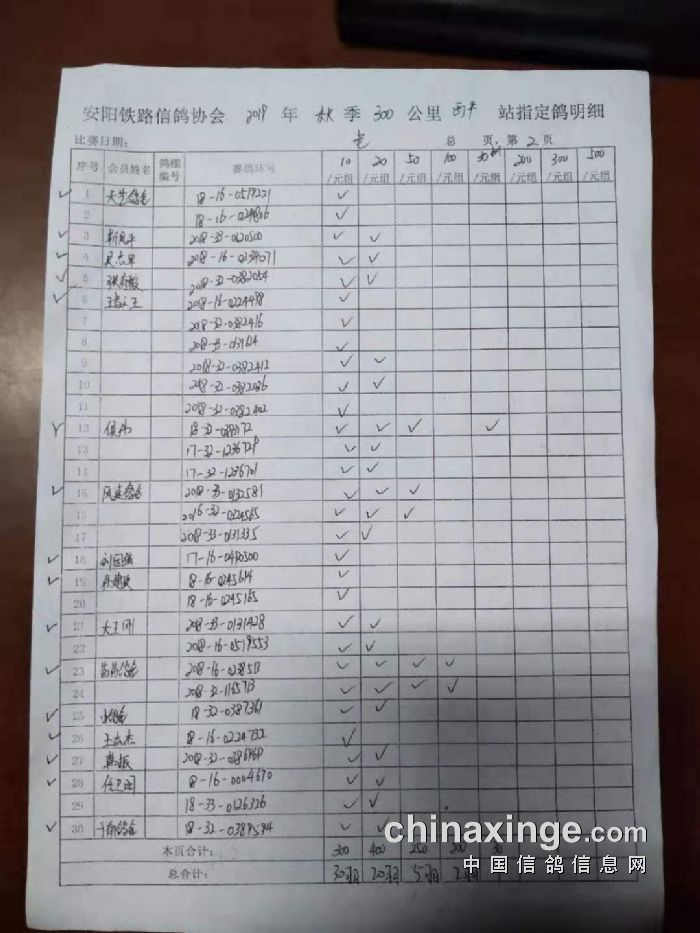 安阳铁路信鸽协会 2019 年 秋 季 300 公里 西平 站指定鸽明细
比赛日期: 总 页,第 2 页
序号 会员姓名 鸽棚编号 赛鸽环号 10/元组 20/元组 50/元组 100/元组 200/元组 300/元组 500/元组
1 18-16-0519221 ✓
2 18-16-0224866 ✓
3 2018-33-0120500 ✓ ✓
4 2018-16-0234071 ✓ ✓
5 2018-32-0382054 ✓ ✓
6 2018-16-0224498 ✓
7 2018-32-0382416 ✓
8 2018-33-0131614 ✓
9 2018-32-0382412 ✓ ✓
10 2018-32-0382486 ✓ ✓
11 2018-32-0382402 ✓
12 侯伟 ✓ ✓ ✓ ✓
13 17-32-1236729 ✓ ✓
14 17-32-1236701 ✓ ✓
15 2018-33-0132581 ✓ ✓ ✓
16 ✓ ✓ ✓
17 2018-33-0131335 ✓ ✓
18 刘国强 17-16-0480500 ✓
19 18-16-0245614 ✓
20 18-16-0245165 ✓
21 大王刚 2018-33-0131428 ✓ ✓
22 2018-16-0519553 ✓ ✓
23 2018-16-0238513 ✓ ✓ ✓ ✓
24 2018-32-1165713 ✓ ✓ ✓ ✓
25 18-32-0387361 ✓ ✓
26 王志杰 18-16-0224732 ✓
27 韩振 2018-32-0386969 ✓ ✓
28 任卫国 18-16-0004670 ✓ ✓
29 18-33-0126326 ✓ ✓
30 18-32-0389594 ✓ ✓
本页合计: 300 400 250 200 30
总合计: 30羽 20羽 5羽 2羽
chinaxinge.com
中国信鸽信息网